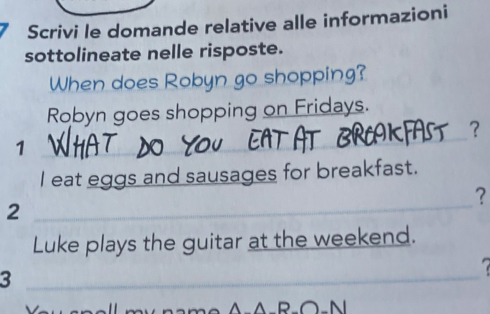 7 Scrivi le domande relative alle informazioni
sottolineate nelle risposte.
When does Robyn go shopping?
Robyn goes shopping on Fridays.
1 WHAT DO YOU EAT AT BREAKFAST ?
I eat eggs and sausages for breakfast.
2 ?
Luke plays the guitar at the weekend.
3 ?
You spell my name A-A-R-O-N